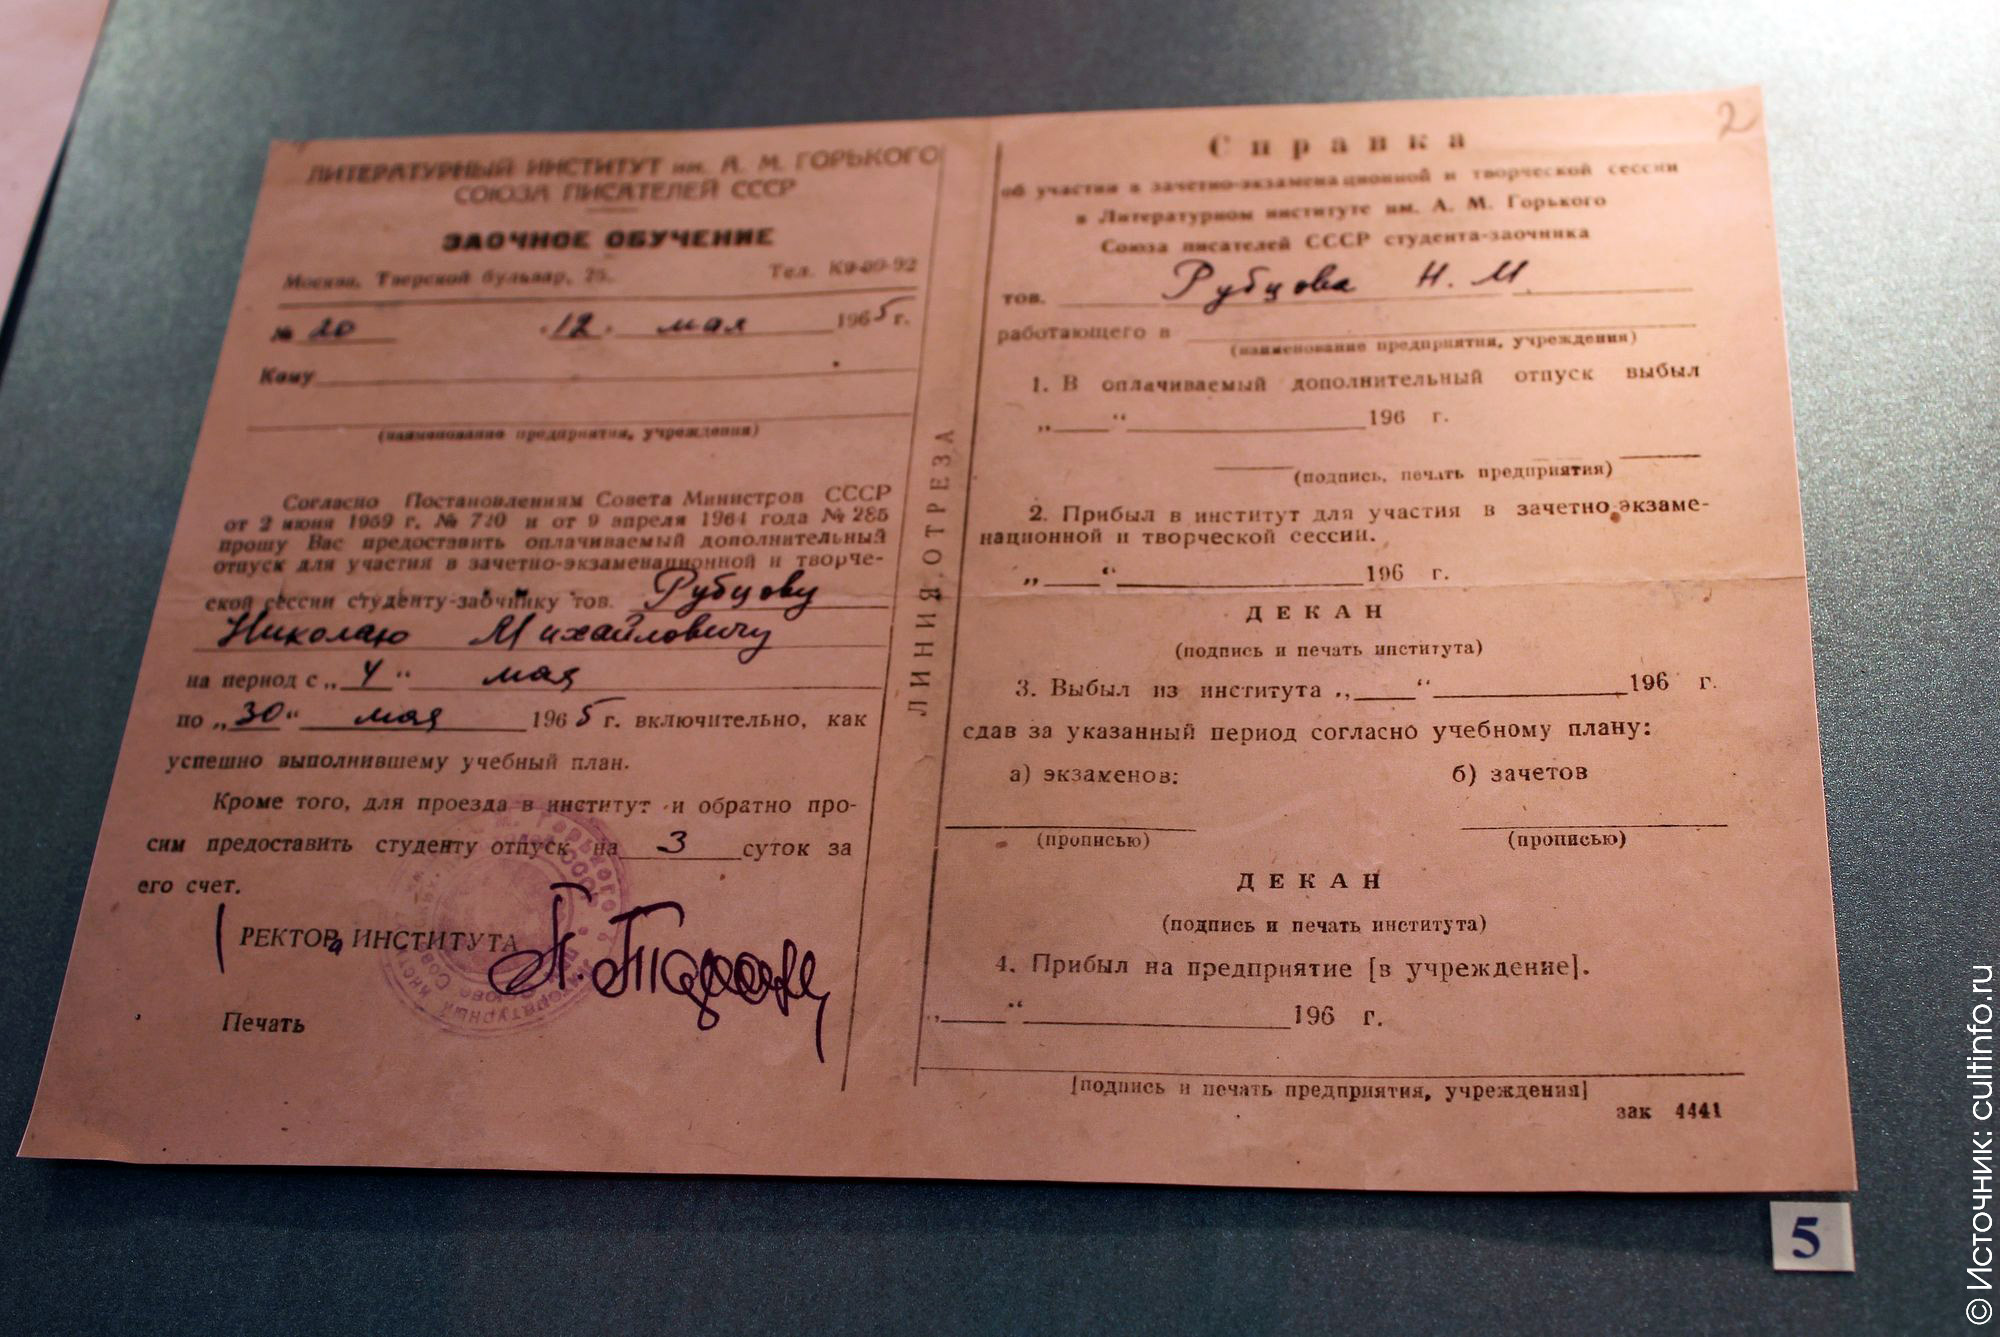 ЛИТЕРАТУРНЫЙ ИНСТИТУТ им. А. М. ГОРЬКОГО
СОЮЗА ПИСАТЕЛЕЙ СССР
ЗАОЧНОЕ ОБУЧЕНИЕ
Москва, Тверской бульвар, 25. Тел. К9-09-92
№ 20 „12" мая 1965 г.
Кому
(наименование предприятия, учреждения)
Согласно Постановлениям Совета Министров СССР
от 2 июня 1959 г. № 720 и от 9 апреля 1964 года № 285
прошу Вас предоставить оплачиваемый дополнительный
отпуск для участия в зачетно-экзаменационной и творче-
ской сессии студенту-заочнику тов. Рубцову
Николаю Михайловичу
на период с „4" мая
по „30" мая 1965 г. включительно, как
успешно выполнившему учебный план.
Кроме того, для проезда в институт и обратно про-
сим предоставить студенту отпуск на 3 суток за
его счет.
РЕКТОРа ИНСТИТУТА
Печать
ЛИНИЯ ОТРЕЗА
2
Справка
об участии в зачетно-экзаменационной и творческой сессии
в Литературном институте им. А. М. Горького
Союза писателей СССР студента-заочника
тов. Рубцова Н. М
работающего в
(наименование предприятия, учреждения)
1. В оплачиваемый дополнительный отпуск выбыл
„ " 196 г.
(подпись, печать предприятия)
2. Прибыл в институт для участия в зачетно-экзаме-
национной и творческой сессии.
„ " 196 г.
ДЕКАН
(подпись и печать института)
3. Выбыл из института „ " 196 г.
сдав за указанный период согласно учебному плану:
а) экзаменов: б) зачетов
(прописью) (прописью)
ДЕКАН
(подпись и печать института)
4. Прибыл на предприятие [в учреждение].
„ " 196 г.
[подпись и печать предприятия, учреждения]
зак 4441
5
© Источник: cultinfo.ru